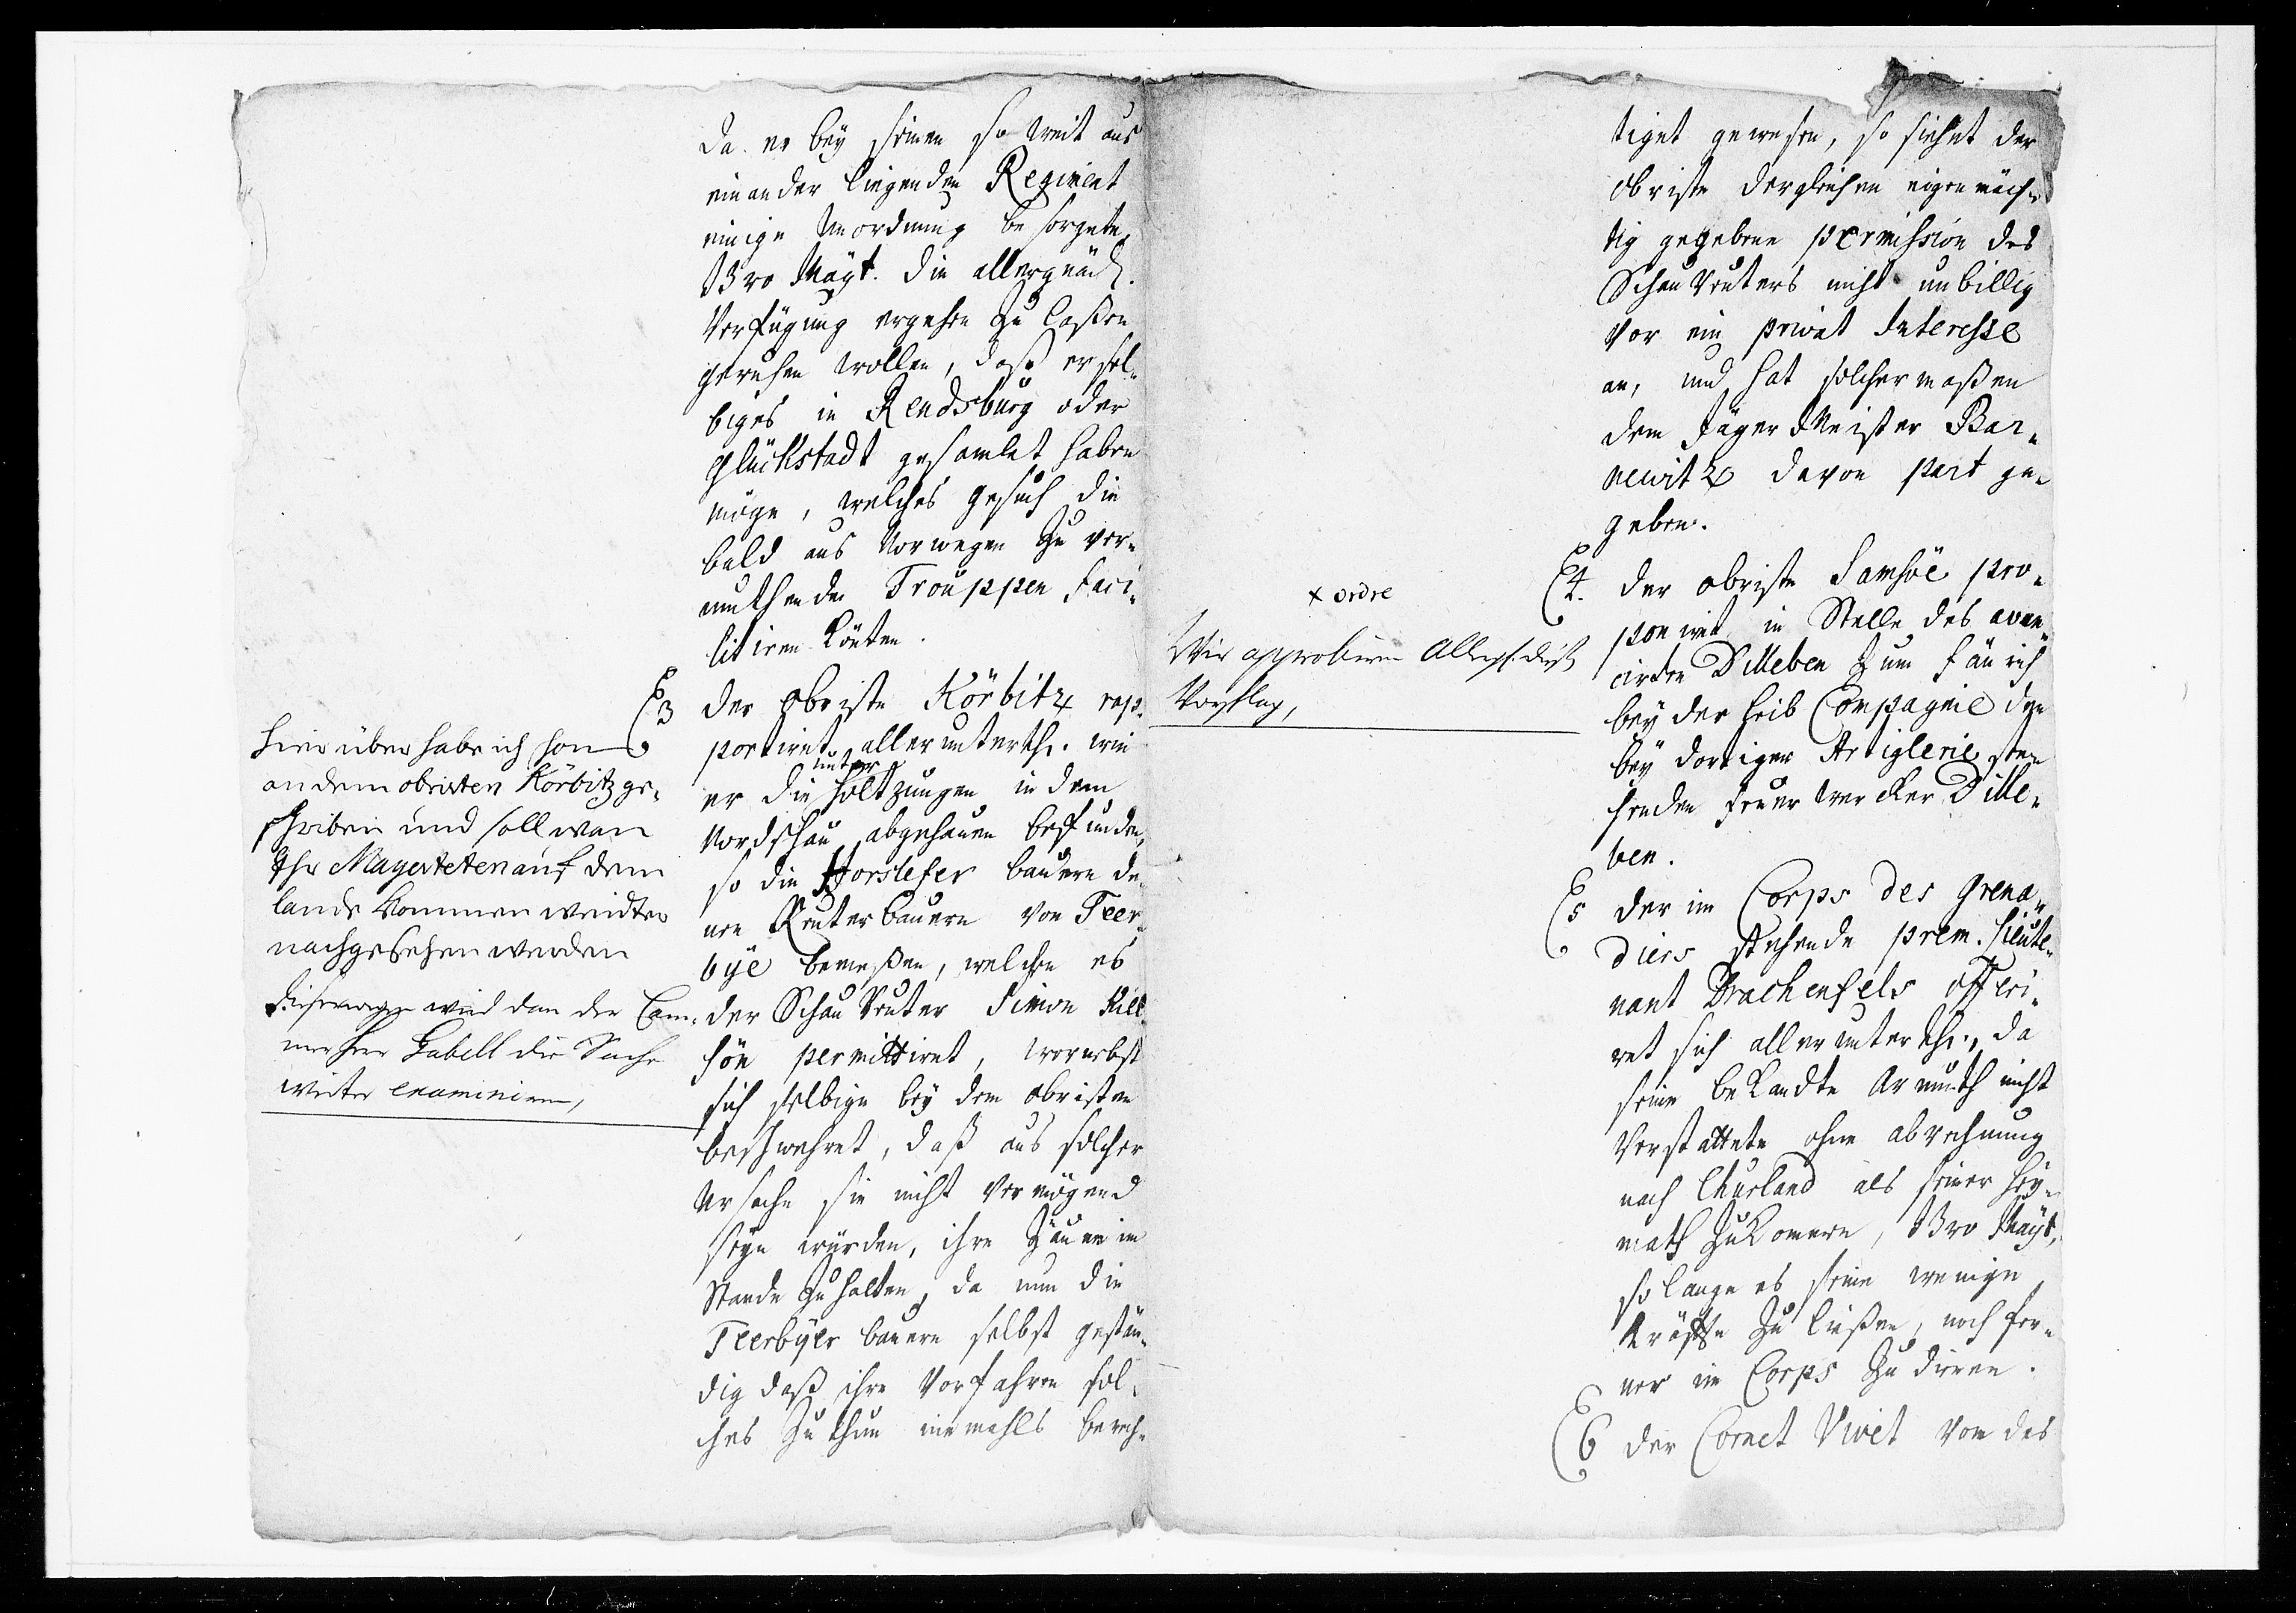 da er bey seinen so weit aus
einander liegenden Regiment
einige Unordnung besorgete,
Ew. Mayt. die allergnäd.
Verfügung ergehen zu laßen
geruhen wollen, daß er sel-
biges in Rendsburg oder
Glückstadt gesamlet haben
möge, welches gesuch die
bald aus Norwegen zu ver-
muthende Trouppen faci-
litiren könten.
3 der obriste Körbitz rap-
portiret allerunterth. wie
unter
er die holtzungen in dem
Nordskau abgehauen befunden,
so die Horslefer bauern de-
nen Reuter bauern von Teer-
bye bewießen, welchen es
der SchauReuter Simon Kill-
sön permittiret, wornebst
sich selbige bey dem obristen
beschwehret, daß aus solcher
Ursache sie nicht vermögend
seyn würden, ihre Zäune im
Stande zu halten, da nun die
Teerbyer bauern selbst gestän-
dig daß ihre Vorfahren sol-
ches zu thun niemahls berech-
hier über habe ich schon
an dem obristen Körbitz ge-
schriben und soll wan
Ihr Mayesteten auf dem
lande kommen weidter
nachgesehen werden
dießerwegen wird dan der Cam-
mer herr Gabell die Sache
weiter examiniren,
tiget gewesen, so siehet der
obriste dergleichen eigenmäch-
tig gegebene permission des
SchauReuters nicht unbillig
vor ein privat Interesse
an, und hat solchermaßen
dem Jäger Meister Bar-
newitz davon part ge-
geben.
4. der obriste Samsöe pro-
poniret in Stelle des avan-
cirten Dilleben zum fänrich
bey der Leib Compagnie den
bey dortiger Artiglerie ste-
henden feuerwercker Dille-
ben.
x ordre
Wir approbiren Allergst. diesen
Vorschlag,
5 der im Corps des Grena-
diers stehende prem. Lieute-
nant Drachenfels offeri-
ret sich allerunterth., da
seine bekandte Armuth nicht
verstattete ohne abrechnung
nach Churland als seiner hey-
math zu kommen, Ew. Mayt.
so lange es seine wenige
Kräffte zu ließen, noch fer-
ner im Corps zu dienen.
6 der Cornet Vivet von des